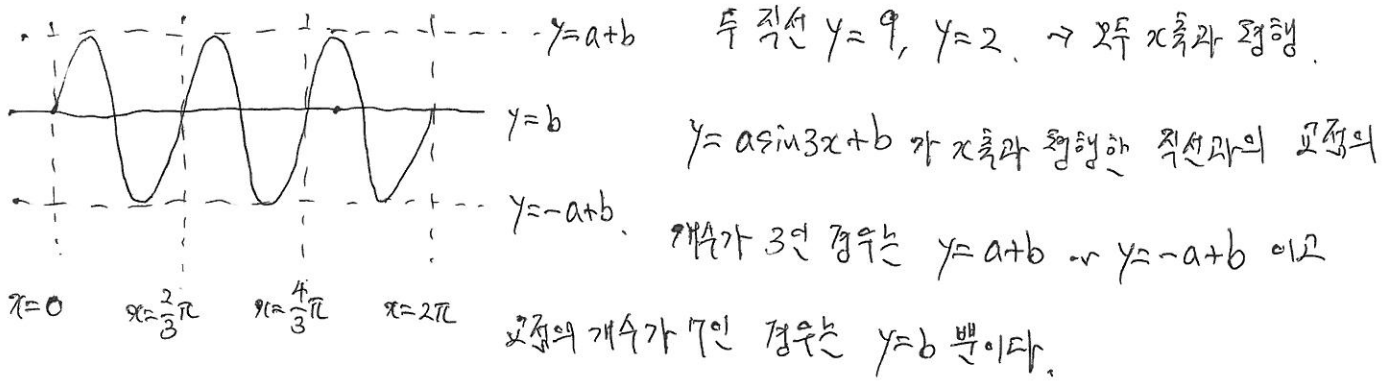 y=a+b
y=b
y=-a+b.
x=0 x=2/3π x=4/3π x=2π
두 직선 y=9, y=2. → 모두 x축과 평행.
y=asin3x+b 가 x축과 평행한 직선과의 교점의
개수가 3인 경우는 y=a+b or y=-a+b 이고
교점의 개수가 7인 경우는 y=b 뿐이다.